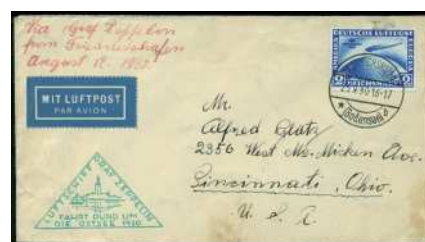 Via Graf Zeppelin
from Friedrichshafen
August 12, 1930.
DEUTSCHE LUFTPOST
2 REICHSMARK 2
30 16-17
(Bodensee)
MIT LUFTPOST
PAR AVION
Mr.
Alfred Glatz
2356 West Mc.Micken Ave.
Cincinnati, Ohio.
U. S. A.
LUFTSCHIFF GRAF ZEPPELIN
FAHRT RUND UM
DIE OSTSEE 1930